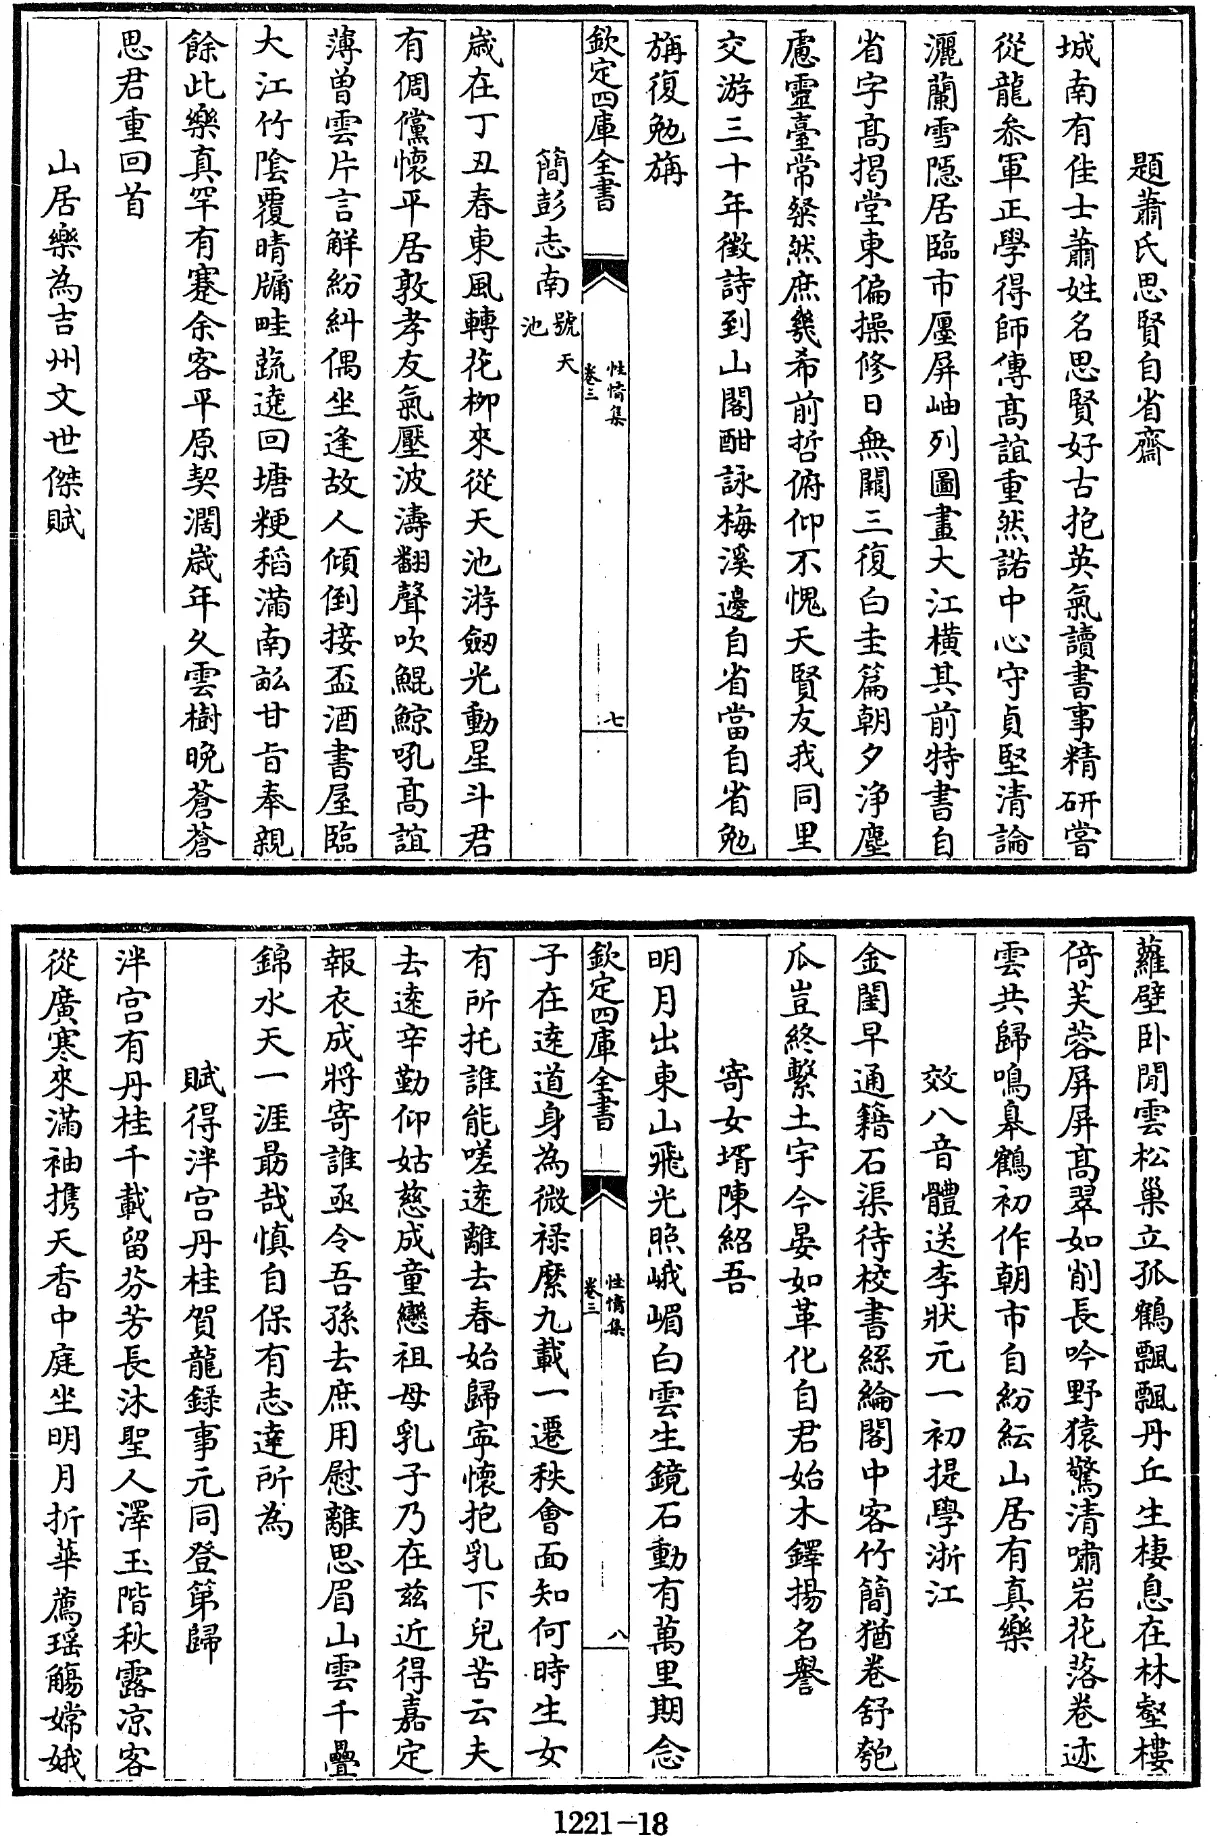 題蕭氏思賢自省齋
城南有佳士蕭姓名思賢好古抱英氣讀書事精研嘗
從龍叅軍正學得師傳髙誼重然諾中心守貞堅清論
灑蘭雪隠居臨市廛屏岫列圖畫大江橫其前特書自
省字髙揭堂東偏操修日無闕三復白圭篇朝夕浄塵
慮靈臺常粲然庶幾希前哲俯仰不愧天賢友我同里
交游三十年徵詩到山閣酣詠梅溪邊自省當自省勉
旃復勉旃
欽定四庫全書
性情集
卷三
七
簡彭志南號天池
歳在丁丑春東風轉花栁來從天池游劒光動星斗君
有倜儻懷平居敦孝友氣壓波濤翻聲吹鯤鯨吼髙誼
薄曽雲片言解紛糾偶坐逢故人傾倒接盃酒書屋臨
大江竹陰覆晴牖畦蔬遶回塘粳稻滿南畝甘旨奉親
餘此樂真罕有蹇余客平原契濶歳年久雲樹晚蒼蒼
思君重回首
山居樂為吉州文世傑賦
蘿壁卧閒雲松巢立孤鶴飄飄丹丘生棲息在林壑樓
倚芙蓉屏屏髙翠如削長吟野猿驚清嘯岩花落卷迹
雲共歸鳴臯鶴初作朝市自紛紜山居有真樂
效八音體送李狀元一初提學浙江
金閨早通籍石渠待校書絲綸閣中客竹簡猶卷舒匏
瓜豈終繫土宇今晏如革化自君始木鐸揚名譽
寄女壻陳紹吾
明月出東山飛光照峨嵋白雲生鏡石動有萬里期念
欽定四庫全書
性情集
卷三
八
子在逺道身為微禄縻九載一遷秩會面知何時生女
有所托誰能嗟逺離去春始歸寜懷抱乳下兒苦云夫
去逺辛勤仰姑慈成童戀祖母乳子乃在兹近得嘉定
報衣成將寄誰亟令吾孫去庶用慰離思眉山雲千疊
錦水天一涯勗哉慎自保有志達所為
賦得泮宫丹桂賀龍録事元同登第歸
泮宫有丹桂千載留芬芳長沐聖人澤玉階秋露凉客
從廣寒來滿袖携天香中庭坐明月折華薦瑶觴嫦娥
1221-18